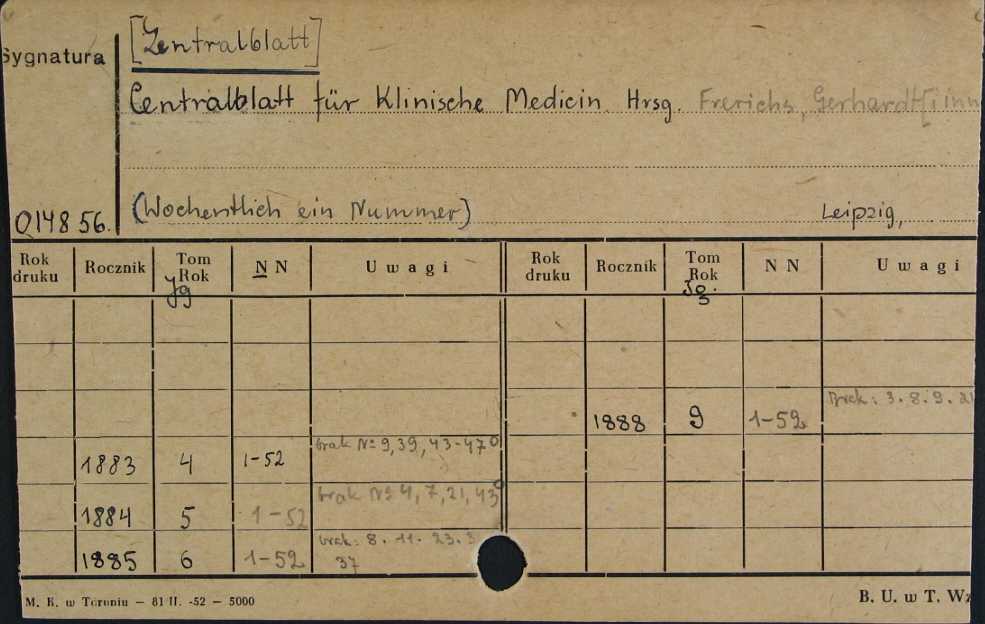 [Zentralblatt]
Sygnatura
Centralblatt für Klinische Medicin Hrsg. Frerichs, Gerhardt [i inn
(Wochentlich ein Nummer) Leipzig,
014856.
Rok druku Rocznik Tom Rok Jg N N Uwagi Rok druku Rocznik Tom Rok Jg. N N Uwagi
1888 9 1-52 Brak: 3. 8. 9. 21
1883 4 1-52 brak No 9, 39, 43-47
1884 5 1-52 brak No 4, 7, 21, 43
1885 6 1-52 brak: 8. 11. 23. 3
37
M. K. w Toruniu — 81 II. -52 — 5000 B. U. w T. Wz